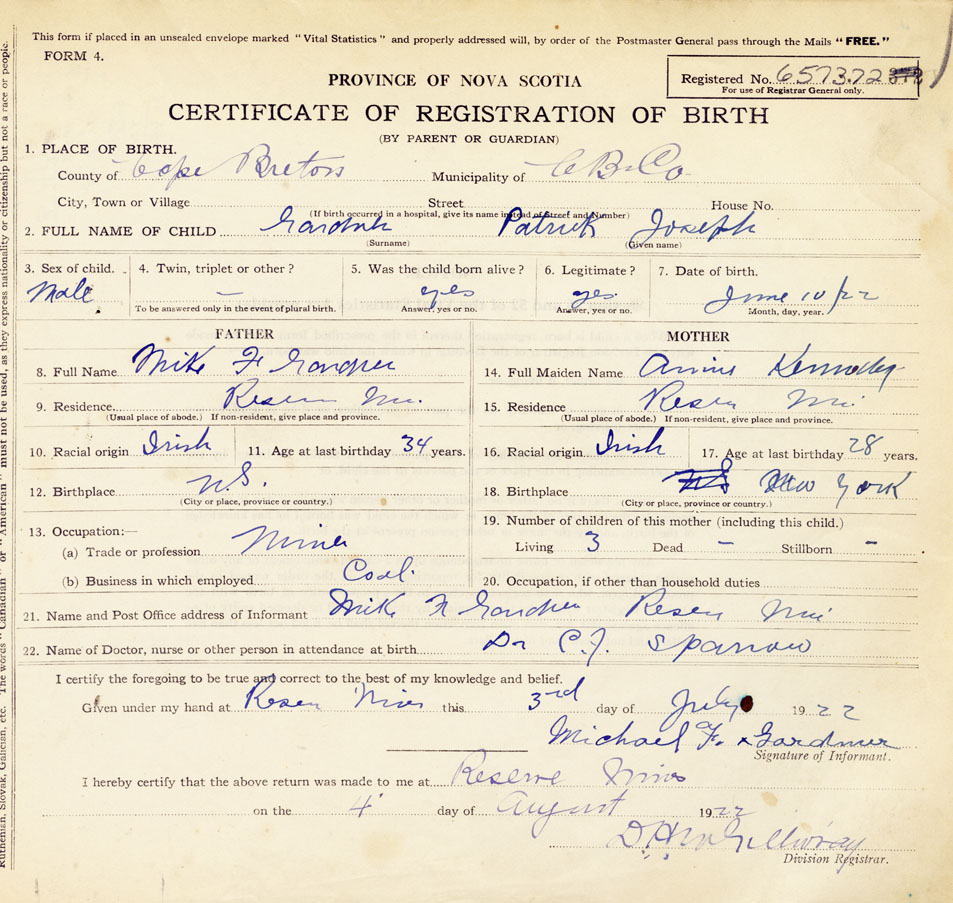 This form if placed in an unsealed envelope marked "Vital Statistics" and properly addressed will, by order of the Postmaster General pass through the Mails "FREE."
FORM 4.
PROVINCE OF NOVA SCOTIA
Registered No. 657372
For use of Registrar General only.
CERTIFICATE OF REGISTRATION OF BIRTH
(BY PARENT OR GUARDIAN)
1. PLACE OF BIRTH.
County of Cape Breton Municipality of C B Co
City, Town or Village Street House No.
(If birth occurred in a hospital, give its name instead of Street and Number)
2. FULL NAME OF CHILD Gardner Patrick Joseph
(Surname) (Given name)
3. Sex of child. 4. Twin, triplet or other? 5. Was the child born alive? 6. Legitimate? 7. Date of birth.
Male – yes yes June 10/22
To be answered only in the event of plural birth. Answer, yes or no. Answer, yes or no. Month, day, year.
FATHER MOTHER
8. Full Name Mike F Gardner 14. Full Maiden Name Annie Kennedy
9. Residence Reserve Mi. 15. Residence Reserve Mi
(Usual place of abode.) If non-resident, give place and province. (Usual place of abode.) If non-resident, give place and province.
10. Racial origin Irish 11. Age at last birthday 34 years. 16. Racial origin Irish 17. Age at last birthday 28 years.
12. Birthplace N.S. 18. Birthplace NS New York
(City or place, province or country.) (City or place, province or country.)
13. Occupation:— 19. Number of children of this mother (including this child.)
(a) Trade or profession Miner Living 3 Dead – Stillborn –
(b) Business in which employed Coal 20. Occupation, if other than household duties
21. Name and Post Office address of Informant Mike F Gardner Reserve Min
22. Name of Doctor, nurse or other person in attendance at birth Dr C.J. Sparrow
I certify the foregoing to be true and correct to the best of my knowledge and belief.
Given under my hand at Reserve Mines this 3rd day of July 1922
Michael F. x Gardner
Signature of Informant.
I hereby certify that the above return was made to me at Reserve Mines
on the 4 day of August 1922
D H McGillivray
Division Registrar.
Ruthenian, Slovak, Galician, etc. The words "Canadian" or "American" must not be used, as they express nationality or citizenship but not a race or people.